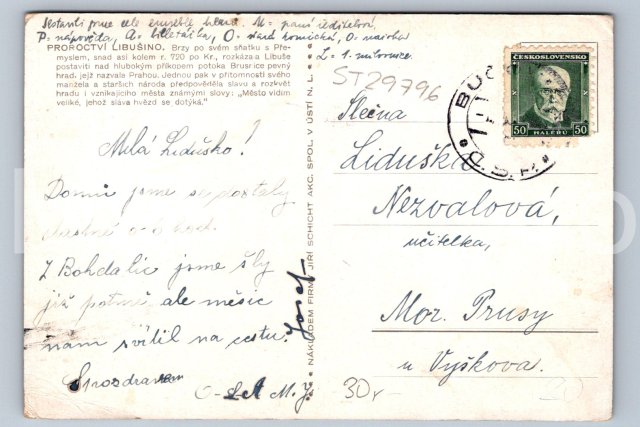 Sestavili jsme celé ensemble hlava. M = paní ředitelová,
P = nápověda, A = biletářka, O = stará komická, O = naivka
L = 1. milovnice.
PROROCTVÍ LIBUŠINO. Brzy po svém sňatku s Pře-
myslem, snad asi kolem r. 720 po Kr., rozkázala Libuše
postaviti nad hlubokým příkopem potoka Brusnice pevný
hrad, jejž nazvala Prahou. Jednou pak v přítomnosti svého
manžela a starších národa předpověděla slavu a rozkvět
hradu i vznikajícího města známými slovy: „Město vidím
veliké, jehož sláva hvězd se dotýká."
Milá Liduško!
Domů jsme se
Z Bohdalic jsme šly
již potmě, ale měsíc
nám svítil na cestu.
S pozdravem
Josef
NÁKLADEM FIRMY JIŘÍ SCHICHT AKC. SPOL. V ÚSTÍ N. L.
ST29796
ČESKOSLOVENSKO
50 HALÉŘŮ 50
BUČ
Slečna
Liduška
Nezvalová,
učitelka,
Mor. Prusy
u Vyškova.
30,-